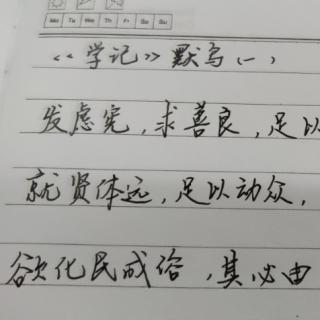 Mo Tu We Th Fr Sa Su
《学记》默写(一)
发虑宪,求善良,足以
就贤体远,足以动众,
欲化民成俗,其必由